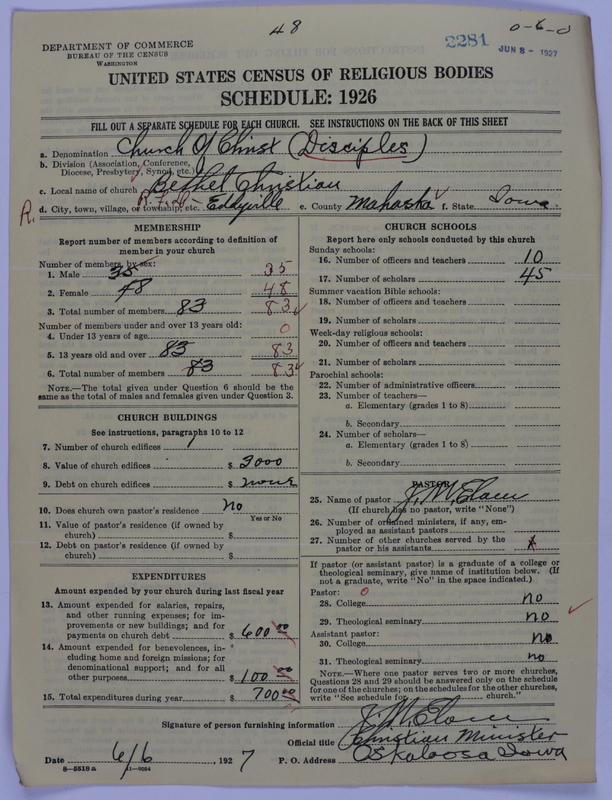 48
0-6-0
DEPARTMENT OF COMMERCE
BUREAU OF THE CENSUS
WASHINGTON
2281 JUN 8 - 1927
UNITED STATES CENSUS OF RELIGIOUS BODIES
SCHEDULE: 1926
FILL OUT A SEPARATE SCHEDULE FOR EACH CHURCH. SEE INSTRUCTIONS ON THE BACK OF THIS SHEET
a. Denomination Church Of Christ (Disciples)
b. Division (Association, Conference,
Diocese, Presbytery, Synod, etc.)
c. Local name of church Bethel Christian
R. d. City, town, village, or township, etc. Eddyville e. County Mahaska f. State Iowa
MEMBERSHIP
Report number of members according to definition of
member in your church
Number of members, by sex:
1. Male 35 35
2. Female 48 48
3. Total number of members 83 83
Number of members under and over 13 years old:
4. Under 13 years of age 0
5. 13 years old and over 83 83
6. Total number of members 83 83
NOTE.—The total given under Question 6 should be the
same as the total of males and females given under Question 3.
CHURCH BUILDINGS
See instructions, paragraphs 10 to 12
7. Number of church edifices 1
8. Value of church edifices $ 3000
9. Debt on church edifices $ none
10. Does church own pastor's residence? No
Yes or No
11. Value of pastor's residence (if owned by
church) $
12. Debt on pastor's residence (if owned by
church) $
EXPENDITURES
Amount expended by your church during last fiscal year
13. Amount expended for salaries, repairs,
and other running expenses; for im-
provements or new buildings; and for
payments on church debt $ 600 00
14. Amount expended for benevolences, in-
cluding home and foreign missions; for
denominational support; and for all
other purposes $ 100 00
15. Total expenditures during year $ 700 00
CHURCH SCHOOLS
Report here only schools conducted by this church
Sunday schools:
16. Number of officers and teachers 10
17. Number of scholars 45
Summer vacation Bible schools:
18. Number of officers and teachers
19. Number of scholars
Week-day religious schools:
20. Number of officers and teachers
21. Number of scholars
Parochial schools:
22. Number of administrative officers
23. Number of teachers—
a. Elementary (grades 1 to 8)
b. Secondary
24. Number of scholars—
a. Elementary (grades 1 to 8)
b. Secondary
PASTOR
25. Name of pastor J. M. Elam
(If church has no pastor, write "None")
26. Number of ordained ministers, if any, em-
ployed as assistant pastors
27. Number of other churches served by the
pastor or his assistants
If pastor (or assistant pastor) is a graduate of a college or
theological seminary, give name of institution below. (If
not a graduate, write "No" in the space indicated.)
Pastor: 0
28. College no
29. Theological seminary no
Assistant pastor:
30. College no
31. Theological seminary no
NOTE.—Where one pastor serves two or more churches,
Questions 28 and 29 should be answered only on the schedule
for one of the churches; on the schedules for the other churches,
write "See schedule for church."
Signature of person furnishing information J. M. Elam
Official title Christian Minister
Date 6/6, 1927 P. O. Address Oskaloosa Iowa
8-5518 a 11-9094